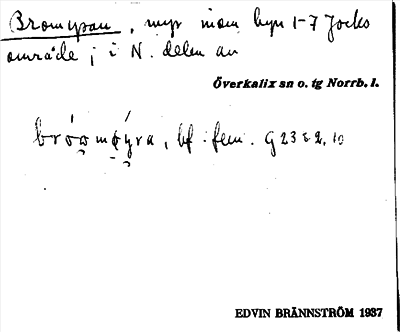 Bromyran, myr inom byn 1-7 Jocks
område; i N. delen av
Överkalix sn o. tg Norrb. l.
bf. fem. G 23 s 2, 10
EDVIN BRÄNNSTRÖM 1937